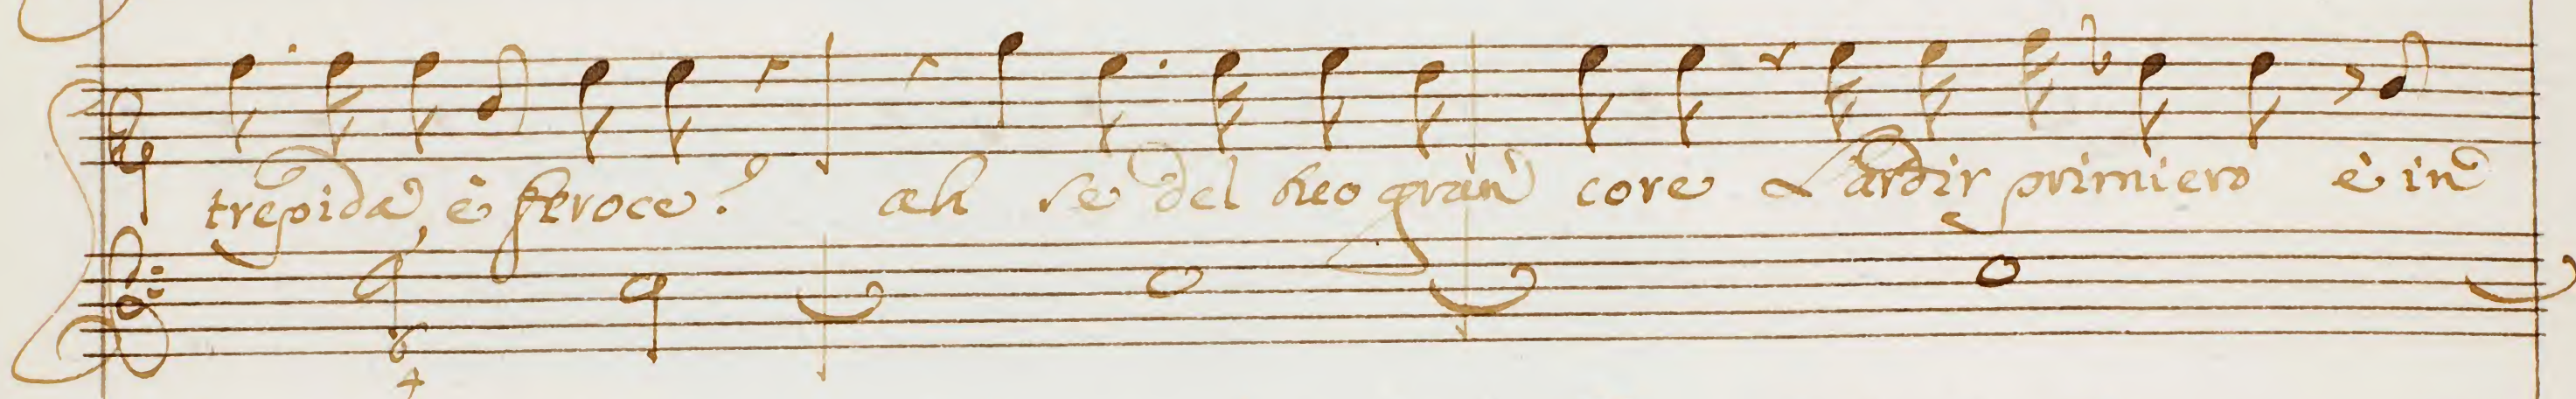 trepida è feroce? ah se del tuo gran core L'ardir primiero è in
6
4